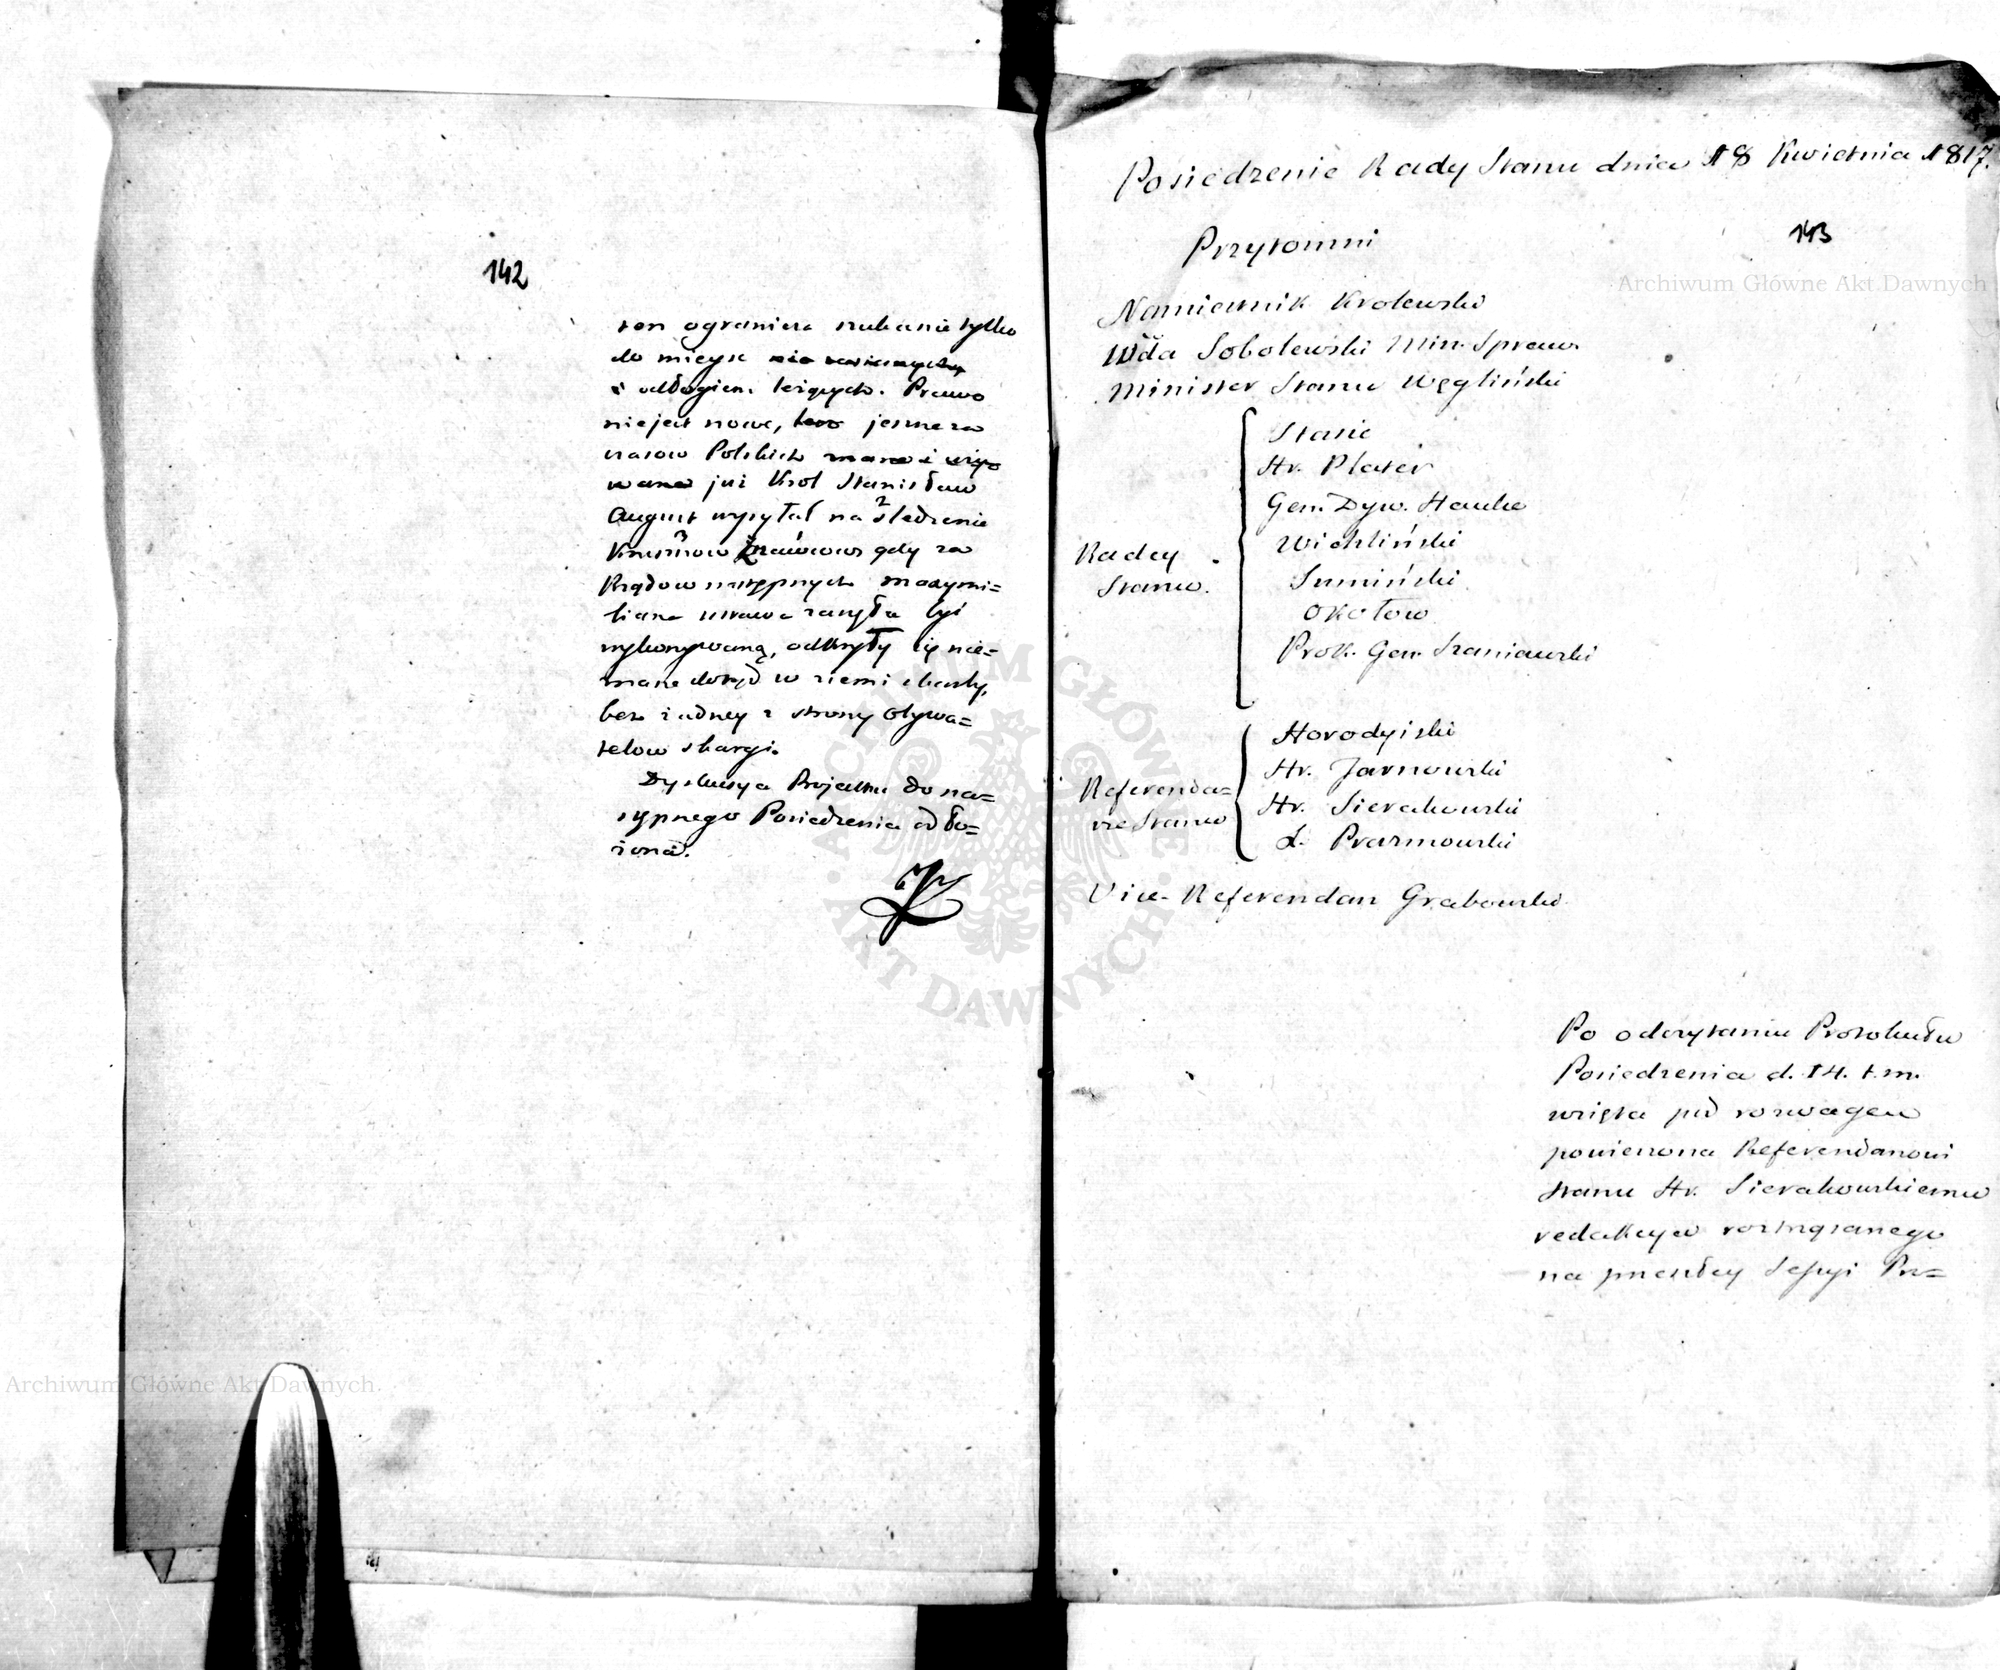 142
ten ogranicza szukanie tylko
do mieysc
i odłogiem leżących. Prawo
nie jest nowe, jeszcze za
czasow Polskich znane i
już Krol Stanisław
August wysyłał na śledzenie
Kruszcow Znawcow gdy za
Rządow następnych maxymi=
liana ustawa zaczęła być
wykonywaną, odkryły się nie=
znane dotąd w ziemi skarby,
bez żadney z strony Obywa=
telow skargi.
Dyskusya Projektu do na=
stępnego Posiedzenia odło=
żona.
Posiedzenie Rady Stanu dnia 18 Kwietnia 1817.
143
Przytomni
Namiestnik Krolewski
Wda Sobolewski Min. Spraw.
Minister Stanu Węgliński
Radcy Stanu.
Stasic
Hr. Plater
Gen. Dyw. Hauke
Wichliński
Sumiński
Okołow
Prok. Gen. Szaniawski
Referenda=
rze Stanu
Horodyiski
Hr. Tarnowski
Hr. Sierakowski
X. Prazmowski
Vice-Referendarz Grabowski
Po odczytaniu Protokułu
Posiedzenia d. 14. t.m.
wzięta pod rozwagę
powierzona Referendarzowi
Stanu Hr. Sierakowskiemu
redakcya roztrząsanego
na przeszłey Sessyi Pro=
Archiwum Główne Akt Dawnych
Archiwum Główne Akt Dawnych
ARCHIWUM GŁÓWNE · AKT DAWNYCH ·